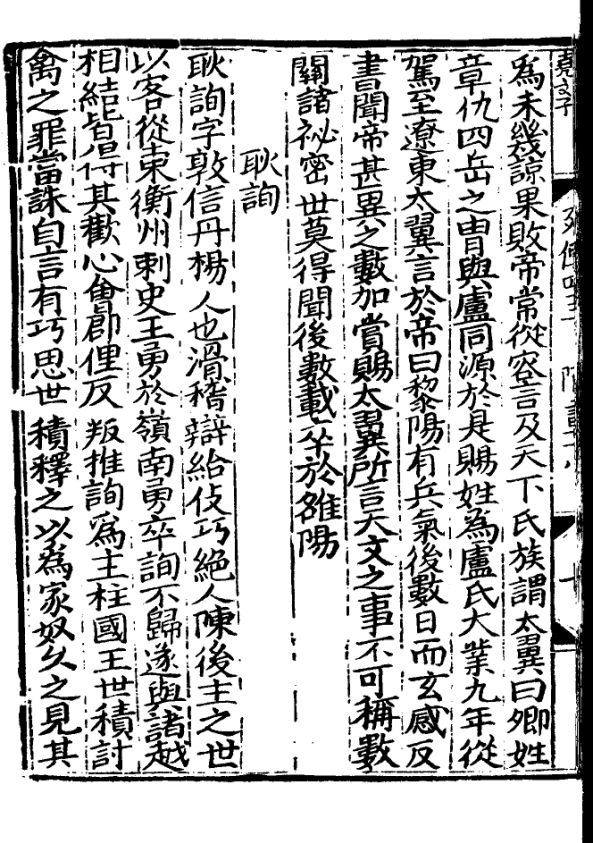 為未幾諒果敗帝常從容言及天下氏族謂太翼曰卿姓
章仇四岳之胄與盧同源於是賜姓為盧氏大業九年從
駕至遼東太翼言於帝曰黎陽有兵氣後數日而玄感反
書聞帝甚異之數加賞賜太翼所言天文之事不可稱數
關諸祕密世莫得聞後數載卒於雒陽
耿詢
耿詢字敦信丹楊人也滑稽辯給伎巧絕人陳後主之世
以客從東衡州刺史王勇於嶺南勇卒詢不歸遂與諸越
相結皆得其歡心會郡俚反叛推詢為主柱國王世積討
禽之罪當誅自言有巧思世積釋之以為家奴久之見其